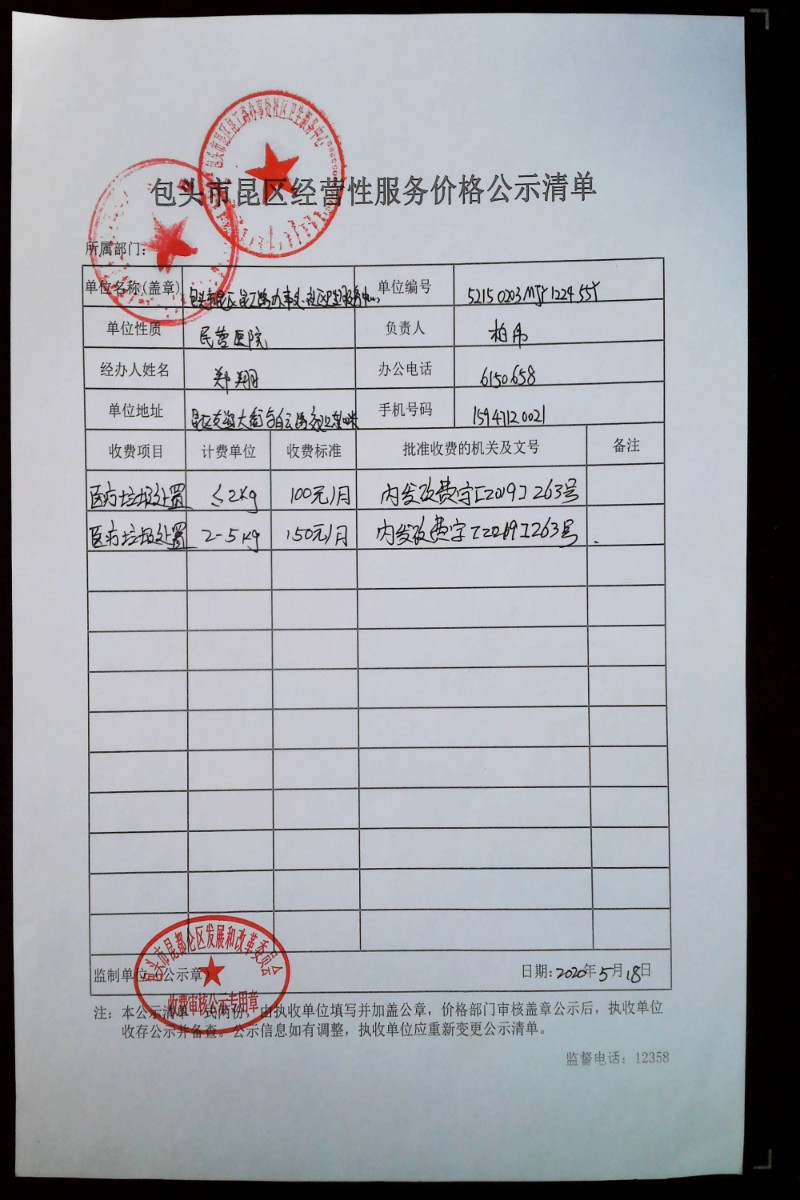 包头市昆区经营性服务价格公示清单
所属部门:
单位名称(盖章) 包头市昆区昆工路办事处社区卫生服务中心 单位编号
单位性质 民营医院 负责人 柏伟
经办人姓名 郑翔 办公电话 6150658
单位地址 手机号码 15947120021
收费项目 计费单位 收费标准 批准收费的机关及文号 备注
医疗垃圾处置 ≤2kg 100元/月 内发改费字[2019]263号
医疗垃圾处置 2-5kg 150元/月 内发改费字[2019]263号
监制单位(公示章)
日期:2020年5月18日
包头市昆都仑区发展和改革委员会
收费审核公示专用章
注:本公示清单一式两份,由执收单位填写并加盖公章,价格部门审核盖章公示后,执收单位
收存公示并备查。公示信息如有调整,执收单位应重新变更公示清单。
监督电话:12358